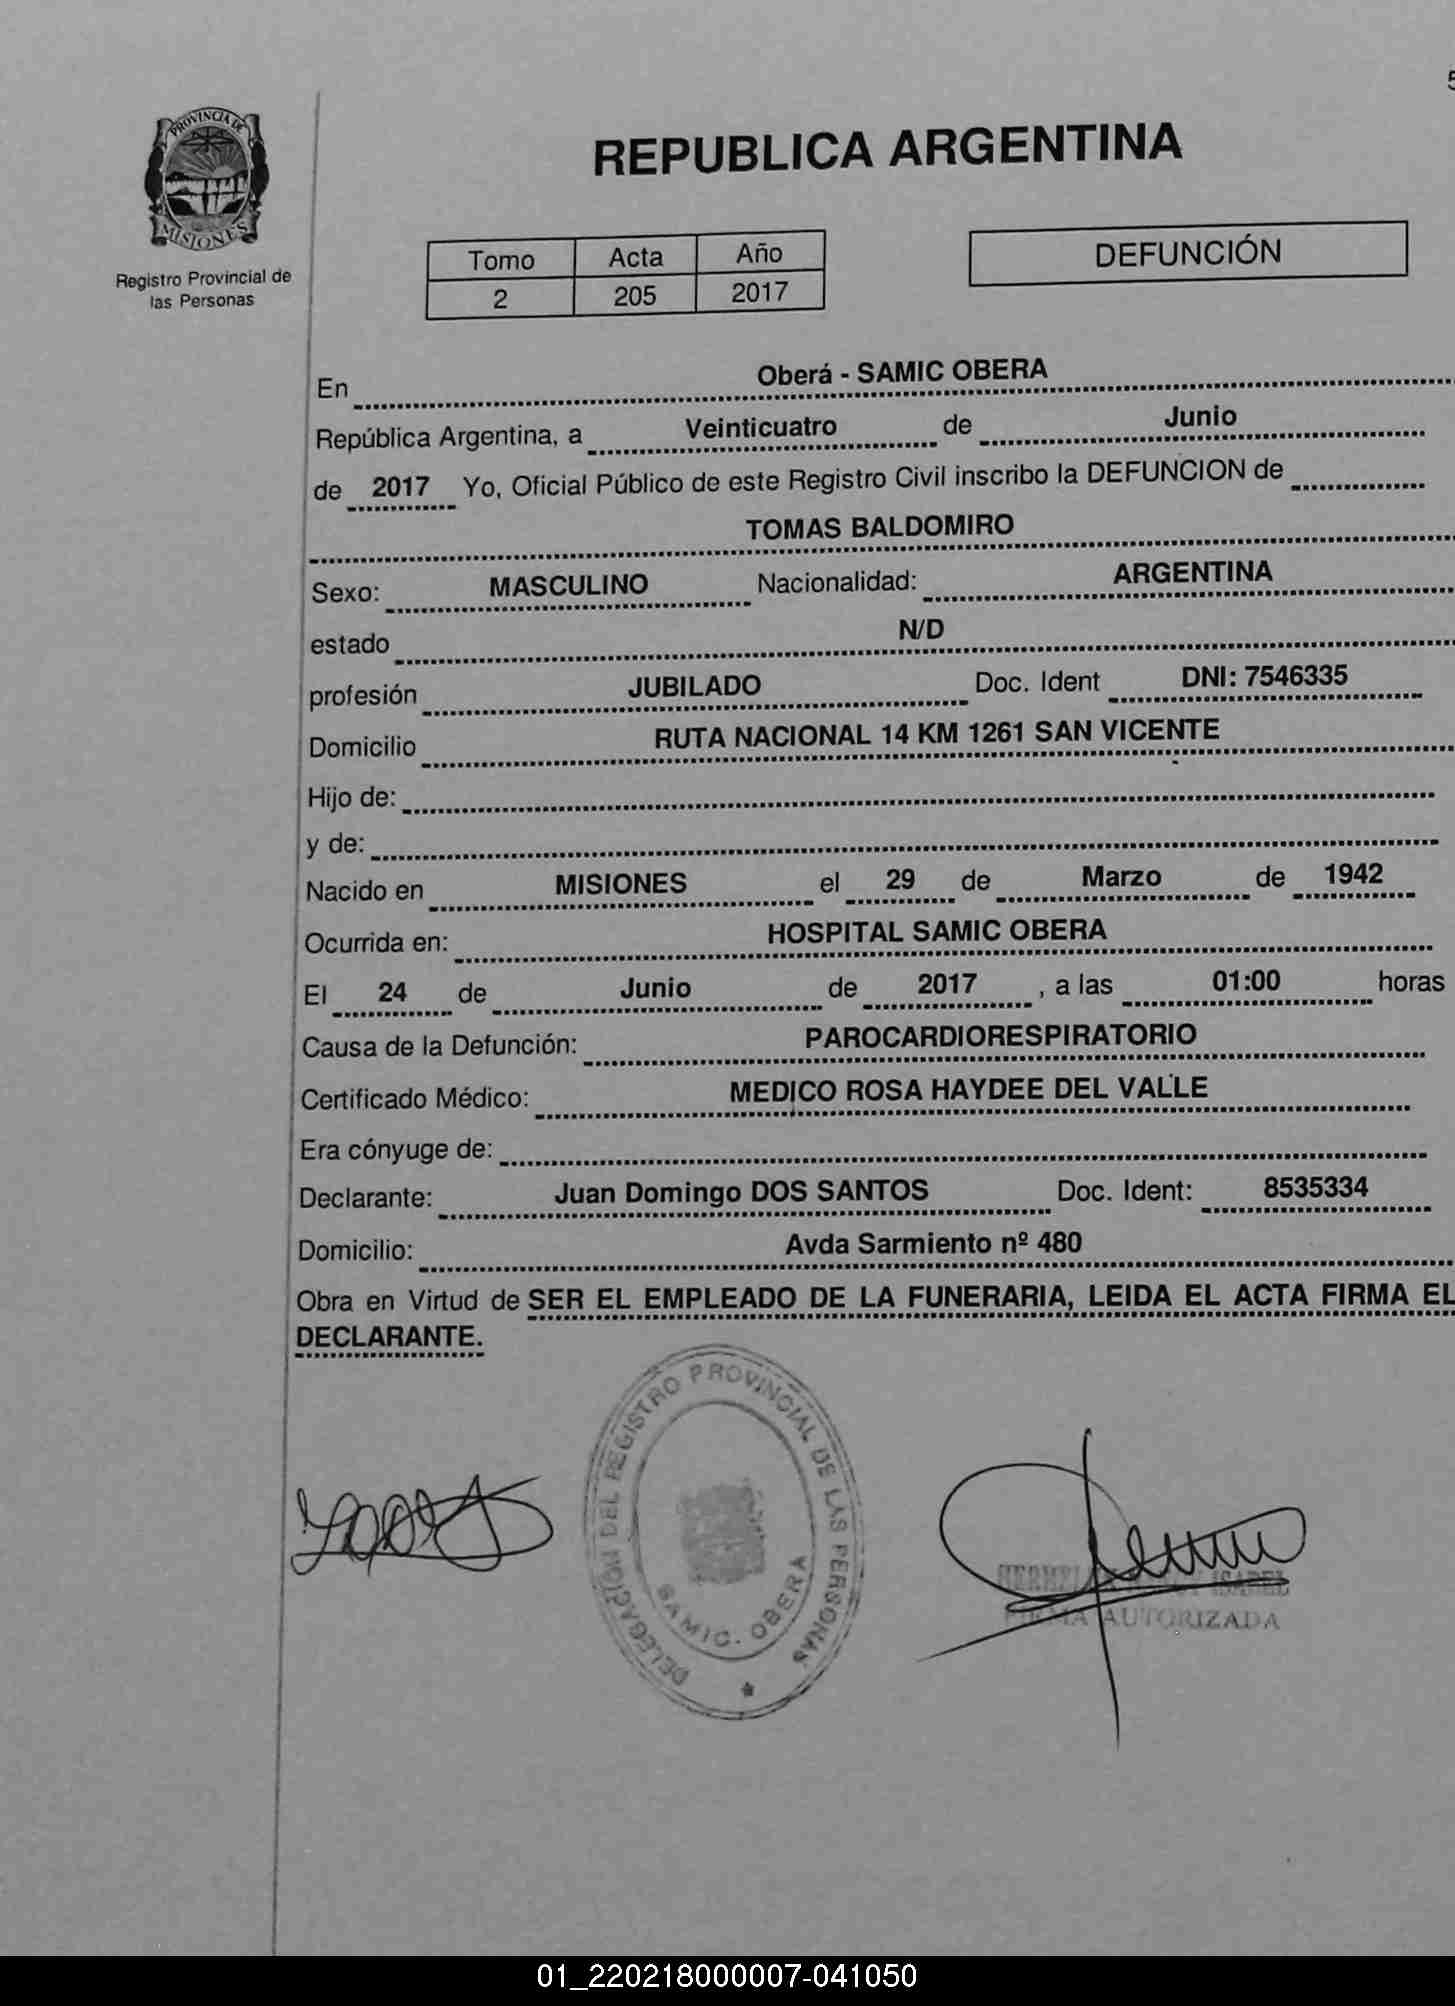 5
PROVINCIA DE
MISIONES
Registro Provincial de
las Personas
REPUBLICA ARGENTINA
Tomo Acta Año
2 205 2017
DEFUNCIÓN
En Oberá - SAMIC OBERA
República Argentina, a Veinticuatro de Junio
de 2017 Yo, Oficial Público de este Registro Civil inscribo la DEFUNCION de
TOMAS BALDOMIRO
Sexo: MASCULINO Nacionalidad: ARGENTINA
estado N/D
profesión JUBILADO Doc. Ident DNI: 7546335
Domicilio RUTA NACIONAL 14 KM 1261 SAN VICENTE
Hijo de:
y de:
Nacido en MISIONES el 29 de Marzo de 1942
Ocurrida en: HOSPITAL SAMIC OBERA
El 24 de Junio de 2017 , a las 01:00 horas
Causa de la Defunción: PAROCARDIORESPIRATORIO
Certificado Médico: MEDICO ROSA HAYDEE DEL VALLE
Era cónyuge de:
Declarante: Juan Domingo DOS SANTOS Doc. Ident: 8535334
Domicilio: Avda Sarmiento nº 480
Obra en Virtud de SER EL EMPLEADO DE LA FUNERARIA, LEIDA EL ACTA FIRMA EL
DECLARANTE.
DELEGACIÓN DEL REGISTRO PROVINCIAL DE LAS PERSONAS
SAMIC. OBERA
ISABEL
FIRMA AUTORIZADA
01_220218000007-041050